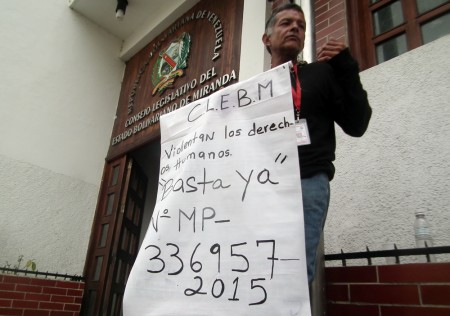 REPÚBLICA BOLIVARIANA DE VENEZUELA
CONSEJO LEGISLATIVO DEL
ESTADO BOLIVARIANO DE MIRANDA
C.L.E.B.M
Violentan los derech-
os Humanos.
"Basta ya"
Nº MP-
336957-
2015